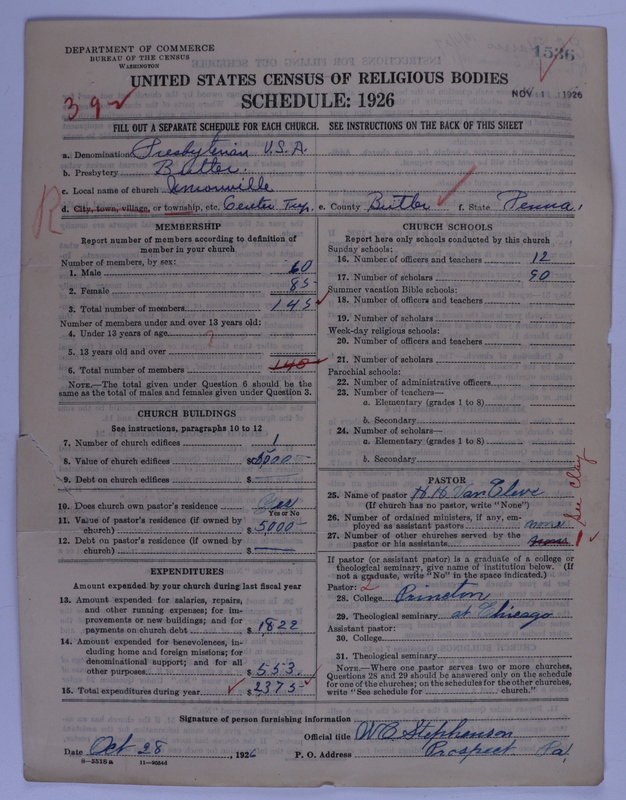 DEPARTMENT OF COMMERCE
BUREAU OF THE CENSUS
WASHINGTON
1536
UNITED STATES CENSUS OF RELIGIOUS BODIES
SCHEDULE: 1926
NOV 1 1926
FILL OUT A SEPARATE SCHEDULE FOR EACH CHURCH. SEE INSTRUCTIONS ON THE BACK OF THIS SHEET
a. Denomination Presbyterian U.S.A.
b. Presbytery Butler.
c. Local name of church Unionville
d. City, town, village, or township, etc. Center Twp. e. County Butler f. State Penna.
MEMBERSHIP
Report number of members according to definition of
member in your church
Number of members, by sex:
1. Male 60
2. Female 85
3. Total number of members 145
Number of members under and over 13 years old:
4. Under 13 years of age
5. 13 years old and over
6. Total number of members 145
NOTE.—The total given under Question 6 should be the
same as the total of males and females given under Question 3.
CHURCH BUILDINGS
See instructions, paragraphs 10 to 12
7. Number of church edifices 1
8. Value of church edifices $ 5000
9. Debt on church edifices $
10. Does church own pastor's residence Yes
Yes or No
11. Value of pastor's residence (if owned by
church) $ 5000
12. Debt on pastor's residence (if owned by
church) $
EXPENDITURES
Amount expended by your church during last fiscal year
13. Amount expended for salaries, repairs,
and other running expenses; for im-
provements or new buildings; and for
payments on church debt $ 1822
14. Amount expended for benevolences, in-
cluding home and foreign missions; for
denominational support; and for all
other purposes $ 553
15. Total expenditures during year $ 2375
CHURCH SCHOOLS
Report here only schools conducted by this church
Sunday schools:
16. Number of officers and teachers 12
17. Number of scholars 90
Summer vacation Bible schools:
18. Number of officers and teachers
19. Number of scholars
Week-day religious schools:
20. Number of officers and teachers
21. Number of scholars
Parochial schools:
22. Number of administrative officers
23. Number of teachers—
a. Elementary (grades 1 to 8)
b. Secondary
24. Number of scholars—
a. Elementary (grades 1 to 8)
b. Secondary
PASTOR
25. Name of pastor H. H. Van Cleve
(If church has no pastor, write "None")
26. Number of ordained ministers, if any, em-
ployed as assistant pastors none
27. Number of other churches served by the
pastor or his assistants none 1
If pastor (or assistant pastor) is a graduate of a college or
theological seminary, give name of institution below. (If
not a graduate, write "No" in the space indicated.)
Pastor:
28. College Princeton
29. Theological seminary at Chicago
Assistant pastor:
30. College
31. Theological seminary
NOTE.—Where one pastor serves two or more churches,
Questions 28 and 29 should be answered only on the schedule
for one of the churches; on the schedules for the other churches,
write "See schedule for church."
Signature of person furnishing information
Official title W E Stephenson
Date Oct 28, 1926 P. O. Address Prospect Pa.
8-5518 a